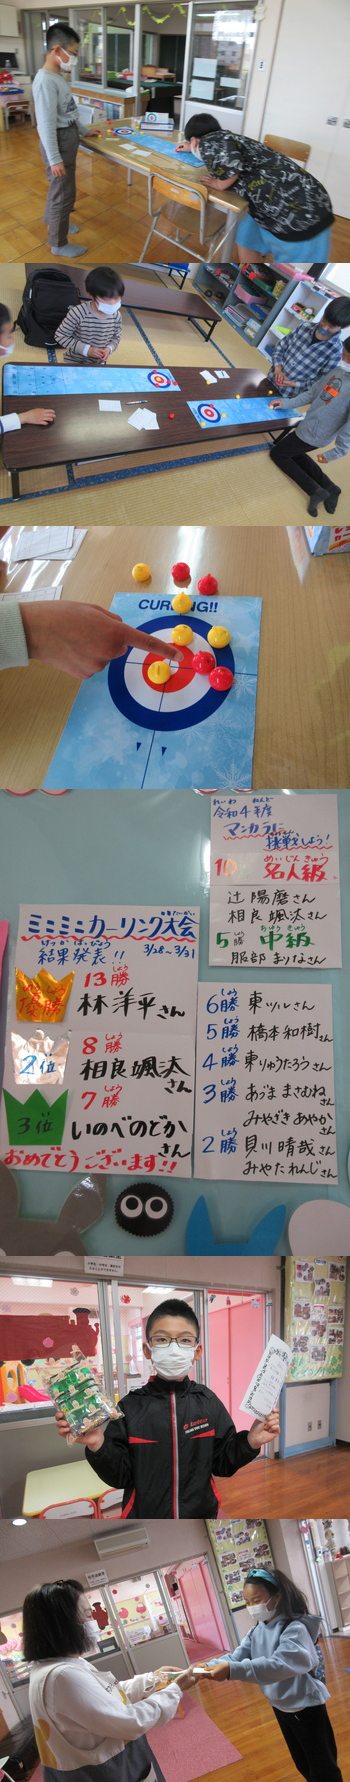 CURLING!!
れいわ ねんど
令和4年度
マンカラに
挑戦しよう!
めいじんきゅう
10 名人級
辻 陽磨さん
相良 颯汰さん
ちゅうきゅう
5勝 中級
服部 まりなさん
ミニミニカーリング大会
けっかはっぴょう
結果発表!! 3/28~3/31
しょう
13勝
優勝 林 洋平さん
しょう
8勝
2位 相良颯汰さん
しょう
7勝
3位 いのべのどかさん
おめでとうございます!!
6勝 東ツルさん
5勝 橋本和樹さん
4勝 東りゅうたろうさん
3勝 あづま まさむねさん
みやざき あやかさん
2勝 貝川 晴哉さん
みやた れんじさん